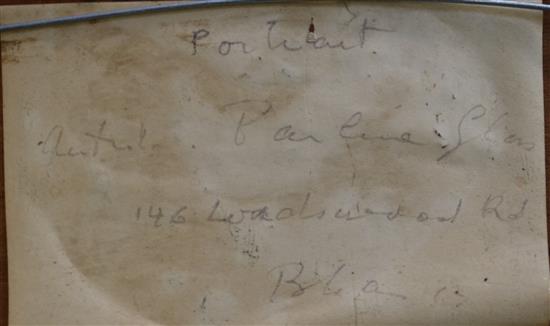 Portrait
Artist. Pauline Glass
146 Lordswood Rd